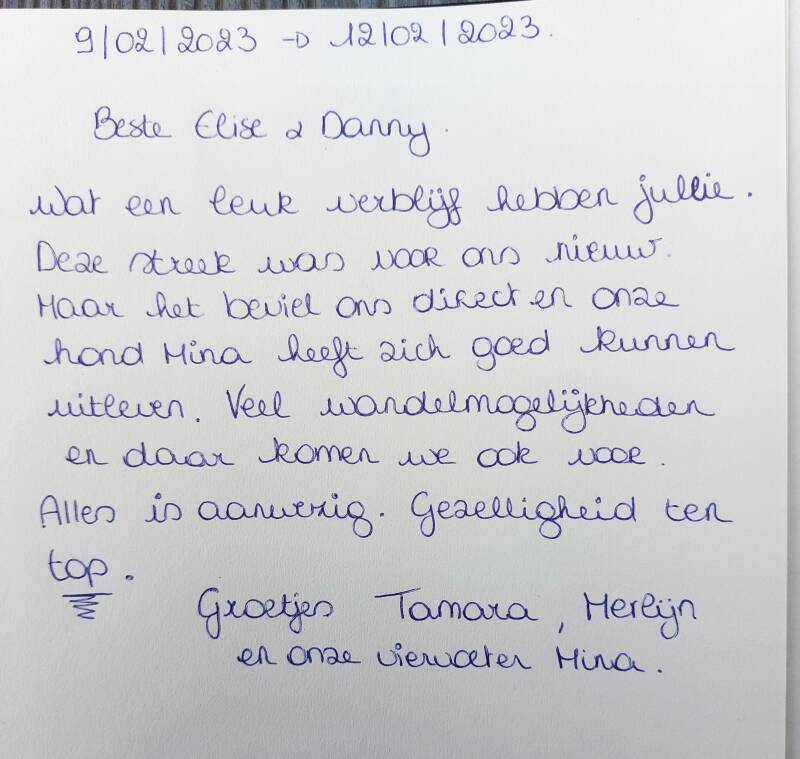 9/02/2023 → 12/02/2023.
Beste Elise & Danny.
Wat een leuk verblijf hebben jullie.
Deze streek was voor ons nieuw.
Maar het beviel ons direct en onze
hond Mina heeft zich goed kunnen
uitleven. Veel wandelmogelijkheden
en daar komen we ook voor.
Alles is aanwezig. Gezelligheid ten
top.
Groetjes Tamara, Merlijn
en onze viervoeter Mina.